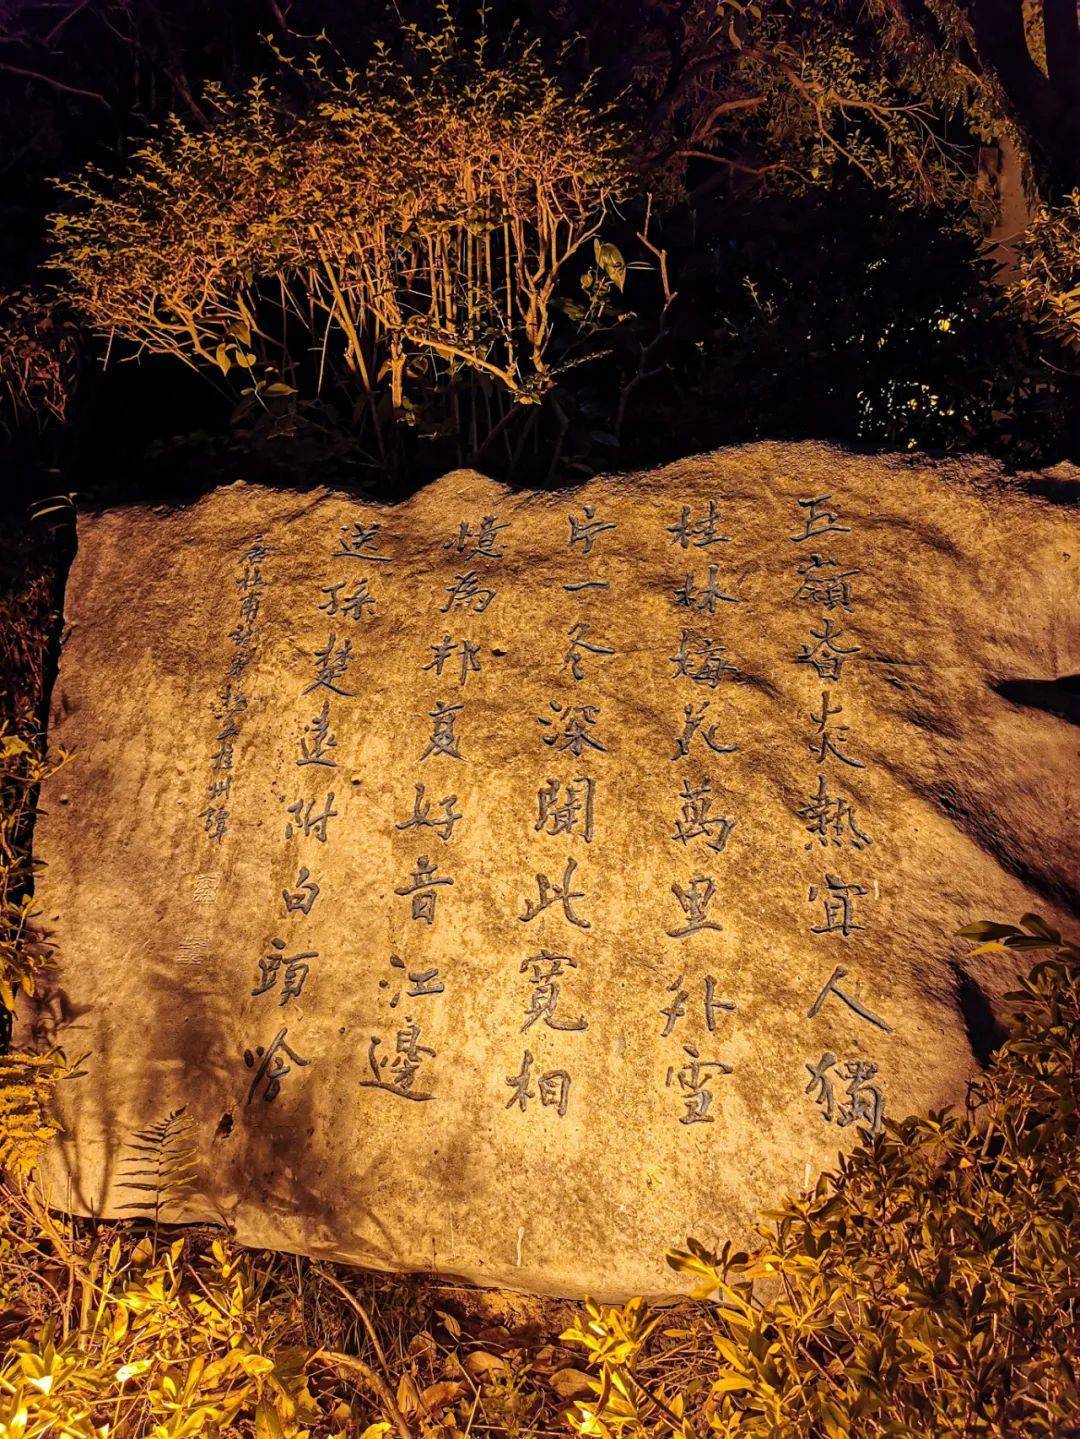 五嶺皆炎熱宜人獨
桂林梅花萬里外雪
片一冬深聞此寬相
憶為邦复好音江邊
送孫楚遠附白頭吟
唐杜甫詩寄楊五桂州譚